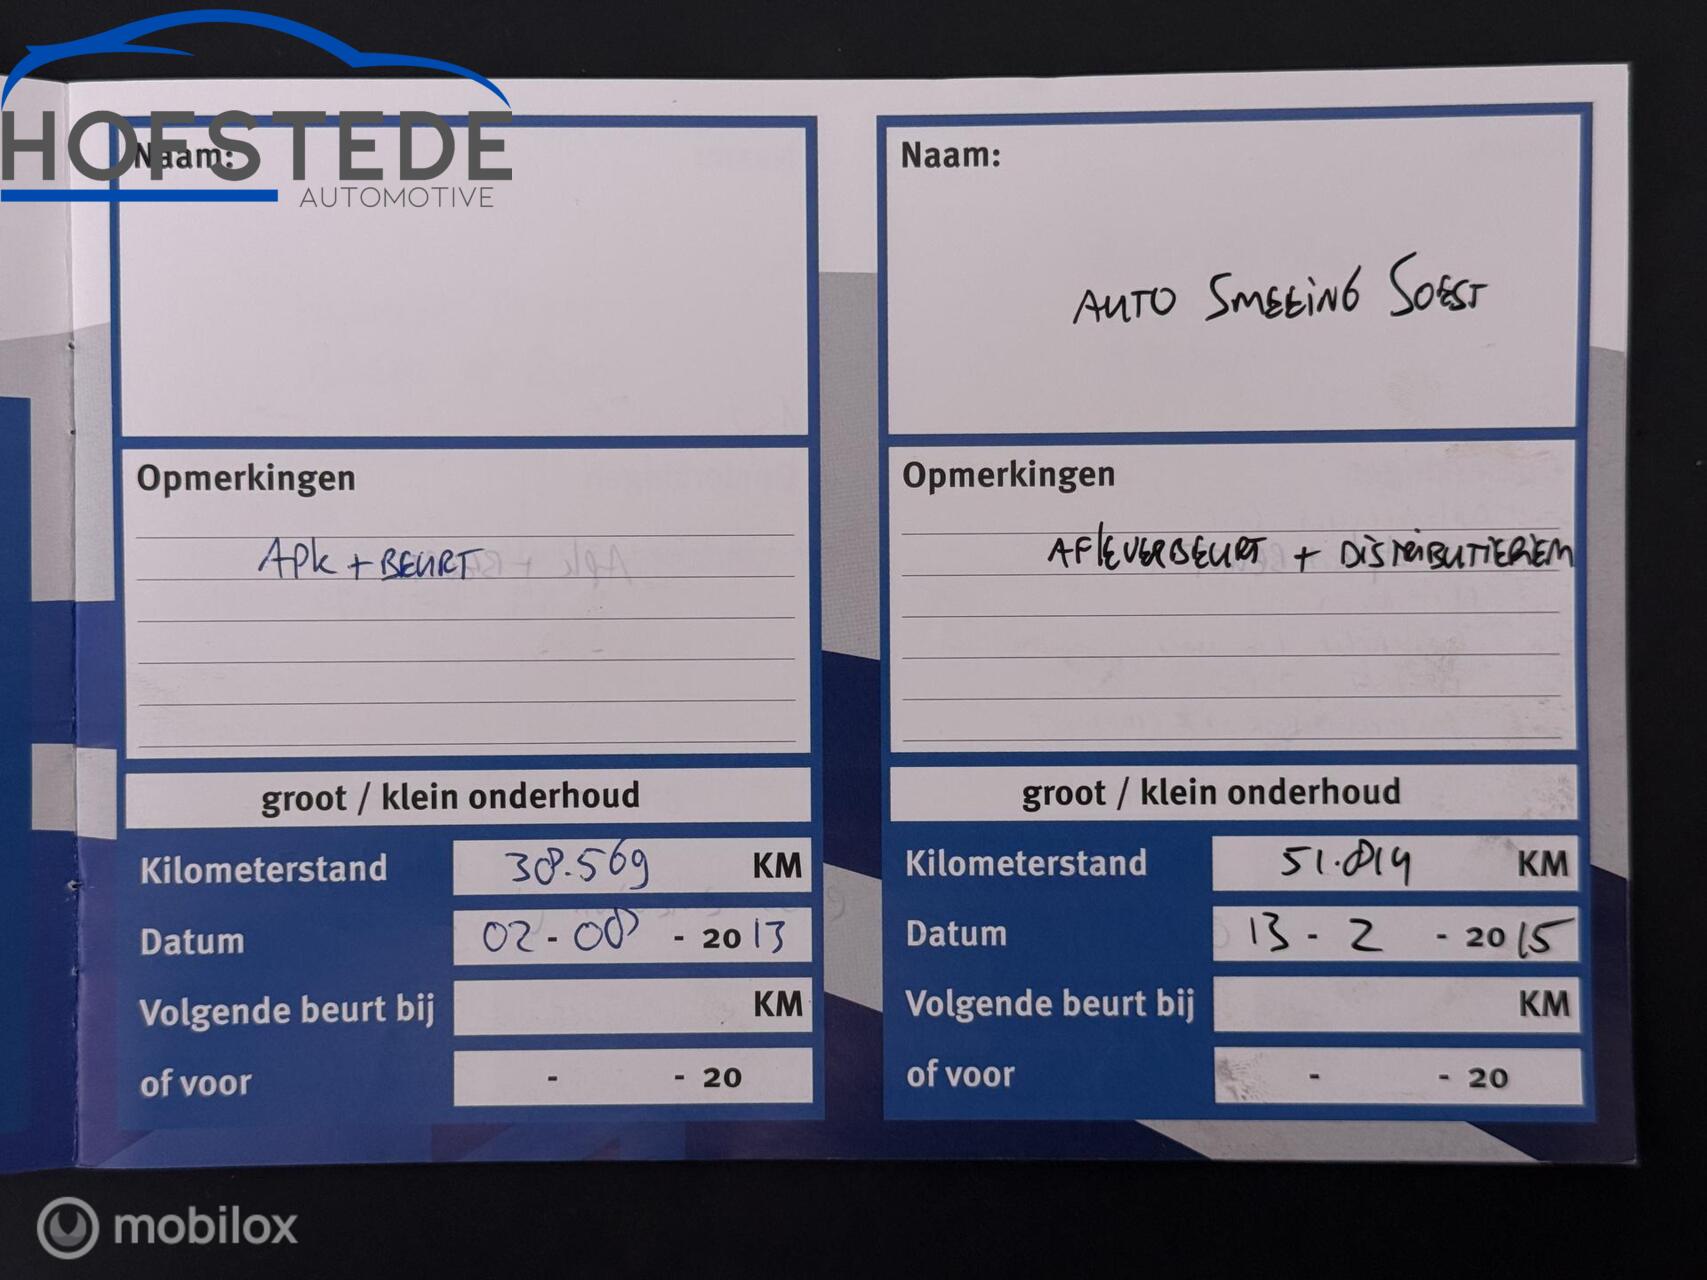 HOFSTEDE
AUTOMOTIVE
Naam:
Opmerkingen
APK + BEURT
groot / klein onderhoud
Kilometerstand 38.569 KM
Datum 02 - 08 - 2013
Volgende beurt bij KM
of voor - - 20
Naam:
AUTO SMEEING SOEST
Opmerkingen
AFLEVERBEURT + DISTRIBUTIERIEM
groot / klein onderhoud
Kilometerstand 51.814 KM
Datum 13 - 2 - 2015
Volgende beurt bij KM
of voor - - 20
mobilox